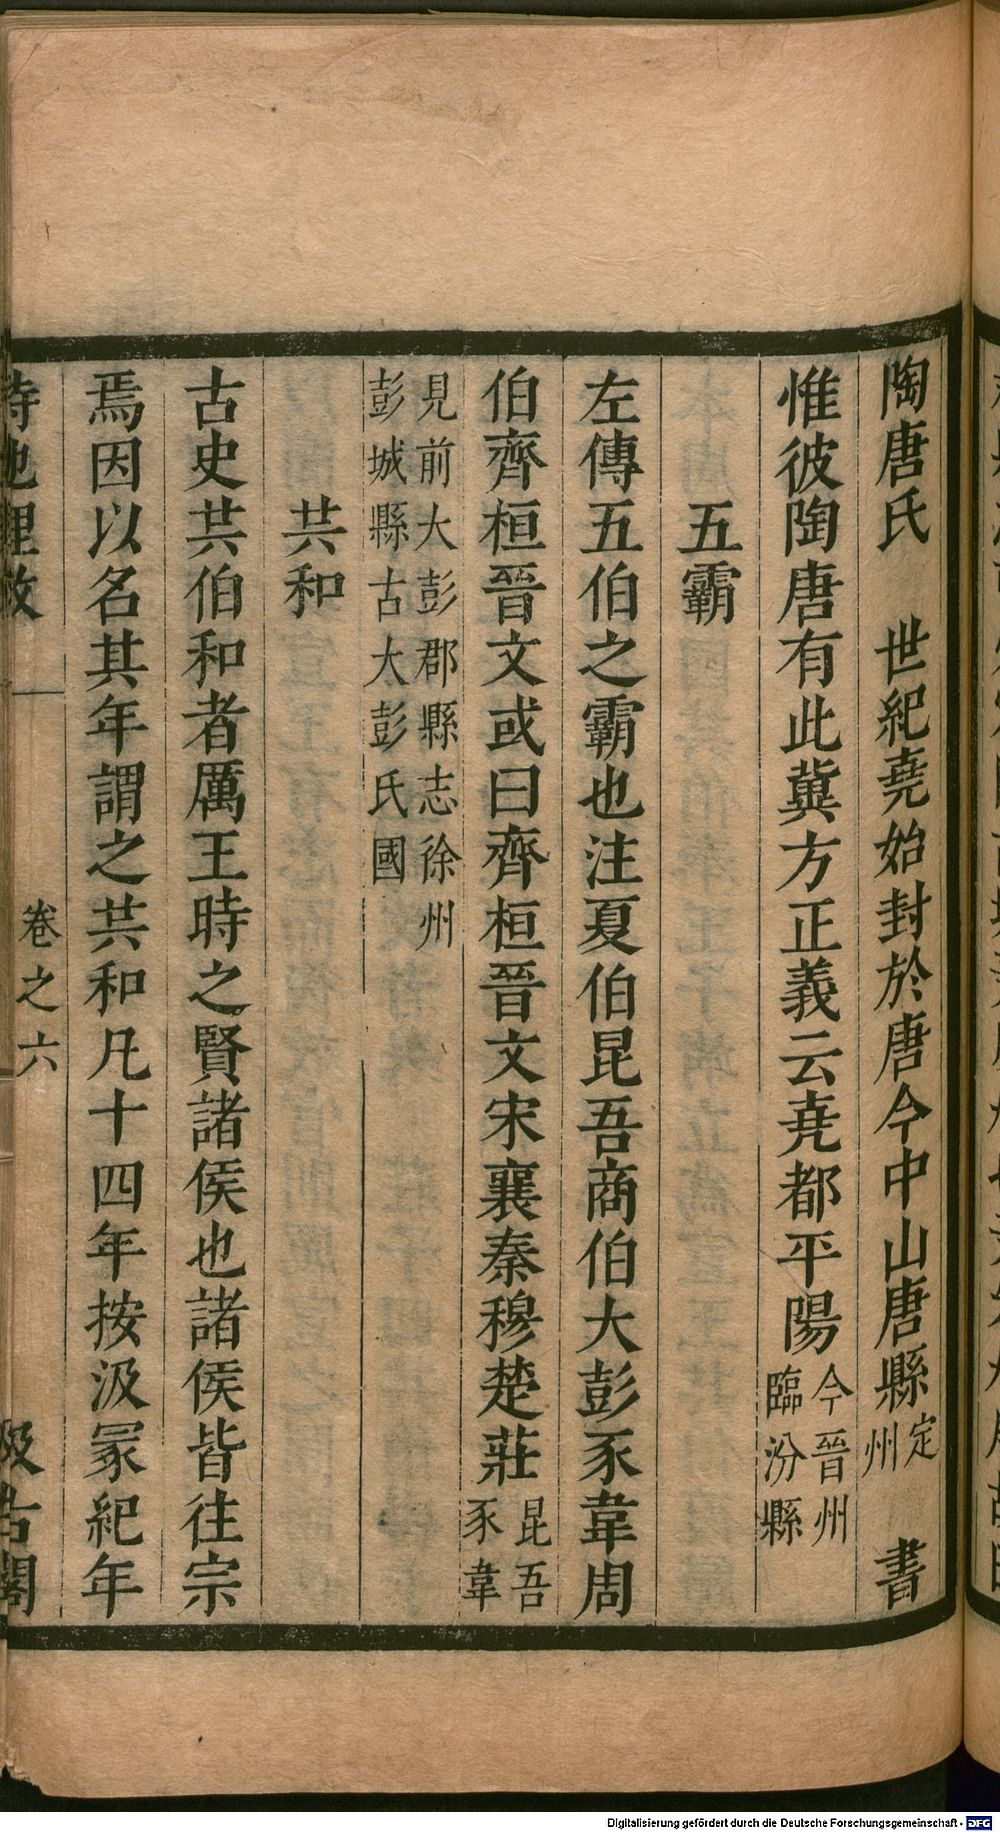 陶唐氏　世紀堯始封於唐今中山唐縣定州　書
惟彼陶唐有此冀方正義云堯都平陽今晉州臨汾縣
五霸
左傳五伯之霸也注夏伯昆吾商伯大彭豕韋周
伯齊桓晉文或曰齊桓晉文宋襄秦穆楚莊昆吾豕韋
見前大彭郡縣志徐州
彭城縣古大彭氏國
共和
古史共伯和者厲王時之賢諸侯也諸侯皆往宗
焉因以名其年謂之共和凡十四年按汲冢紀年
詩地理攷　卷之六　汲古閣
Digitalisierung gefördert durch die Deutsche Forschungsgemeinschaft - DFG